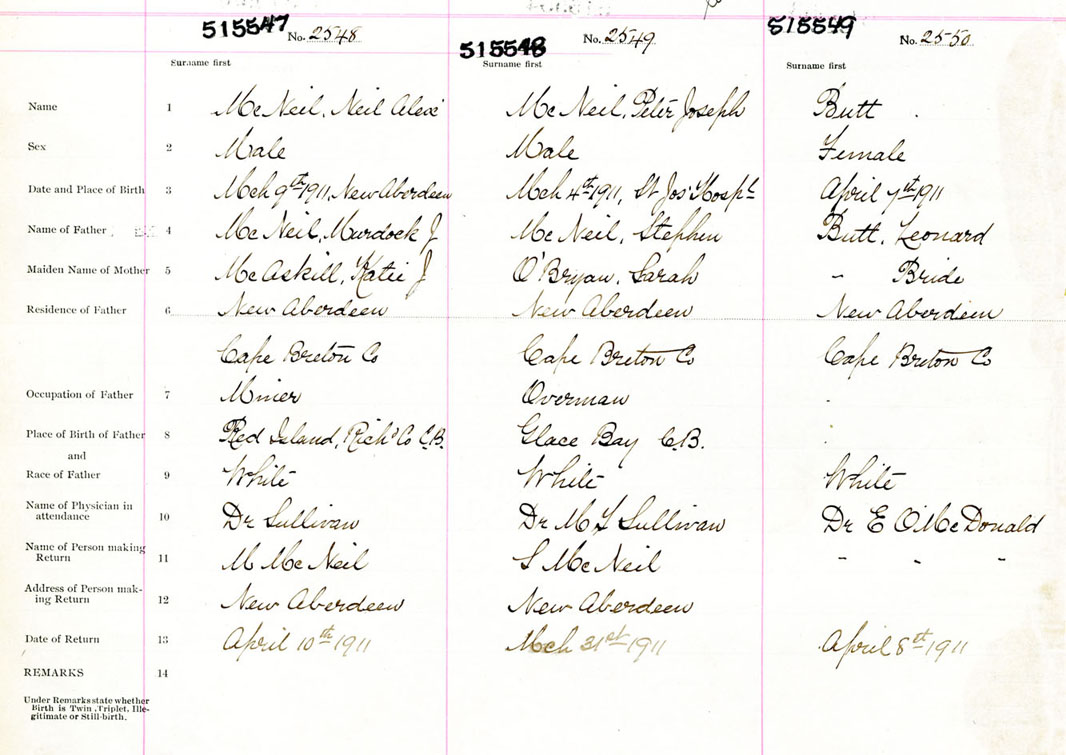 515547 No. 2548 515548 No. 2549 515549 No. 2550
Surname first Surname first Surname first
Name 1 McNeil, Neil Alexr McNeil, Peter Joseph Butt
Sex 2 Male Male Female
Date and Place of Birth 3 Mch 9th 1911, New Aberdeen Mch 4th 1911, St Jos' Hospl April 7th 1911
Name of Father 4 McNeil, Murdock J McNeil, Stephen Butt, Leonard
Maiden Name of Mother 5 McAskill, Katie J O'Bryan, Sarah - Bride
Residence of Father 6 New Aberdeen New Aberdeen New Aberdeen
Cape Breton Co Cape Breton Co Cape Breton Co
Occupation of Father 7 Miner Overman
Place of Birth of Father 8 Red Island, Richd Co C.B. Glace Bay C.B.
and
Race of Father 9 White White White
Name of Physician in
attendance 10 Dr Sullivan Dr M T Sullivan Dr E O McDonald
Name of Person making
Return 11 M McNeil S McNeil - - -
Address of Person mak-
ing Return 12 New Aberdeen New Aberdeen
Date of Return 13 April 10th 1911 Mch 31st 1911 April 8th 1911
REMARKS 14
Under Remarks state whether
Birth is Twin, Triplet, Ille-
gitimate or Still-birth.